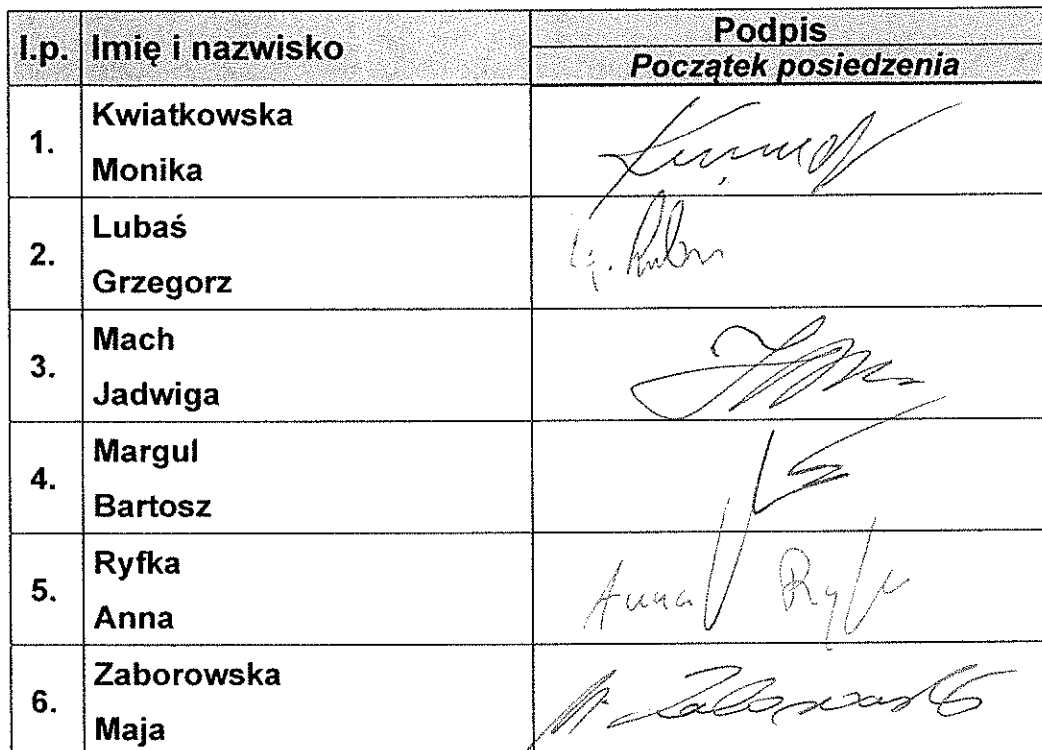 l.p. Imię i nazwisko Podpis
Początek posiedzenia
1. Kwiatkowska
Monika
2. Lubaś
Grzegorz
3. Mach
Jadwiga
4. Margul
Bartosz
5. Ryfka
Anna
Anna
6. Zaborowska
Maja